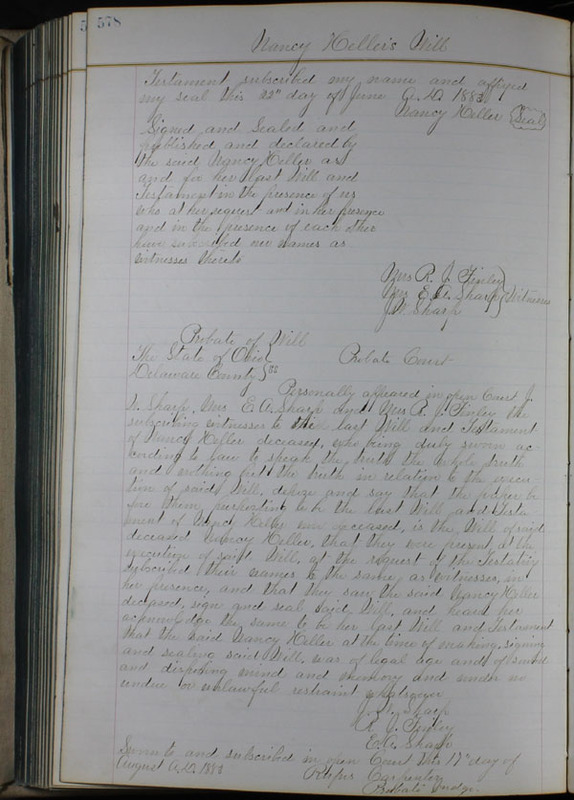 578
Nancy Heller's Will
Testament subscribed my name and affixed
my seal this 22" day of June A.D. 1883
Nancy Heller (Seal)
Signed and Sealed and
published and declared by
the said Nancy Heller as
and for her last Will and
Testament in the presence of us
who at her request and in her presence
and in the presence of each other
have subscribed our names as
witnesses thereto
Mrs R. J. Finley
Mrs E. A. Sharp } Witnesses
J. W. Sharp
Probate of Will
The State of Ohio
Delaware County } SS Probate Court
Personally appeared in open Court J.
W. Sharp, Mrs E. A. Sharp and Mrs R. J. Finley the
subscribing witnesses to the last Will and Testament
of Nancy Heller deceased, who being duly sworn ac-
cording to law to speak the truth the whole truth
and nothing but the truth in relation to the execu-
tion of said Will, depose and say that the paper be
fore them purporting to be the last Will and Testa
ment of Nancy Heller now deceased, is the Will of said
deceased Nancy Heller, that they were present at the
execution of said Will, at the request of the Testatrix
subscribed their names to the same, as witnesses, in
her presence, and that they saw the said Nancy Heller
deceased, sign and seal said Will, and heard her
acknowledge the same to be her last Will and Testament
that the said Nancy Heller at the time of making, signing
and sealing said Will, was of legal age and of sound
and disposing mind and memory and under no
undue or unlawful restraint whatsoever
J. W. Sharp
R. J. Finley
E. A. Sharp
Sworn to and subscribed in open Court this 17" day of
August A.D.
Carpenter
Probate Judge.